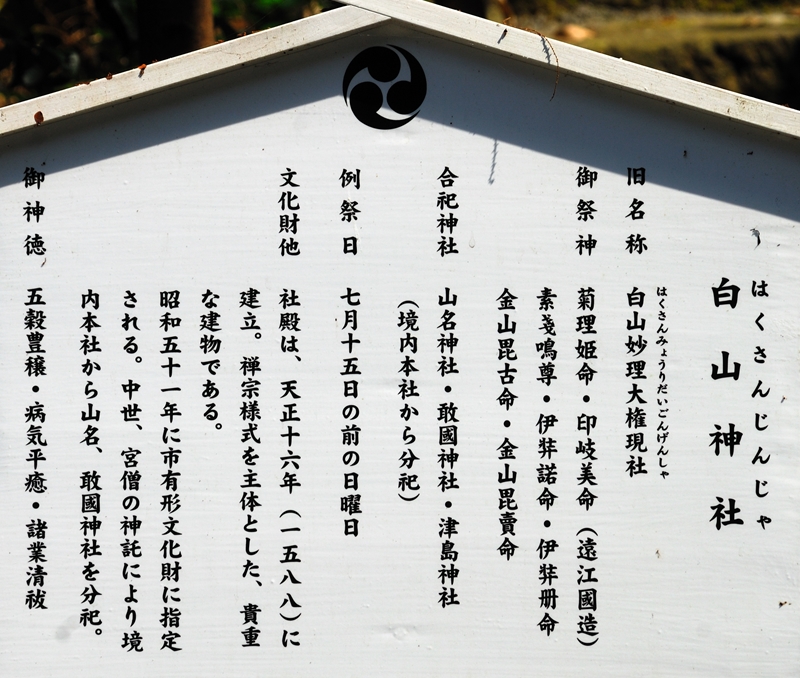 はくさんじんじゃ
白山神社
はくさんみょうりだいごんげんしゃ
旧名称 白山妙理大権現社
御祭神 菊理姫命・印岐美命（遠江國造）
素戔鳴尊・伊弉諾命・伊弉册命
金山毘古命・金山毘賣命
合祀神社 山名神社・敢國神社・津島神社
（境内本社から分祀）
例祭日 七月十五日の前の日曜日
文化財他 社殿は、天正十六年（一五八八）に
建立。禅宗様式を主体とした、貴重
な建物である。
昭和五十一年に市有形文化財に指定
される。中世、宮僧の神託により境
内本社から山名、敢國神社を分祀。
御神徳 五穀豊穣・病気平癒・諸業清祓